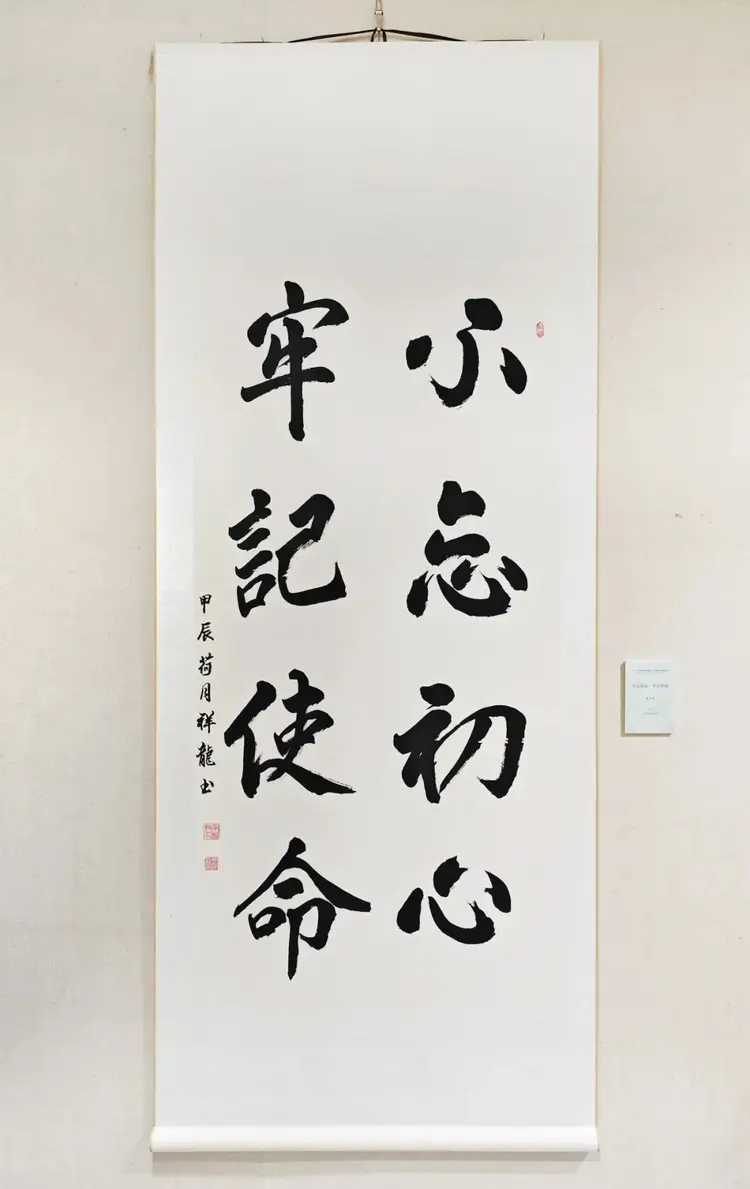 不忘初心
牢記使命
甲辰荷月祥龍书